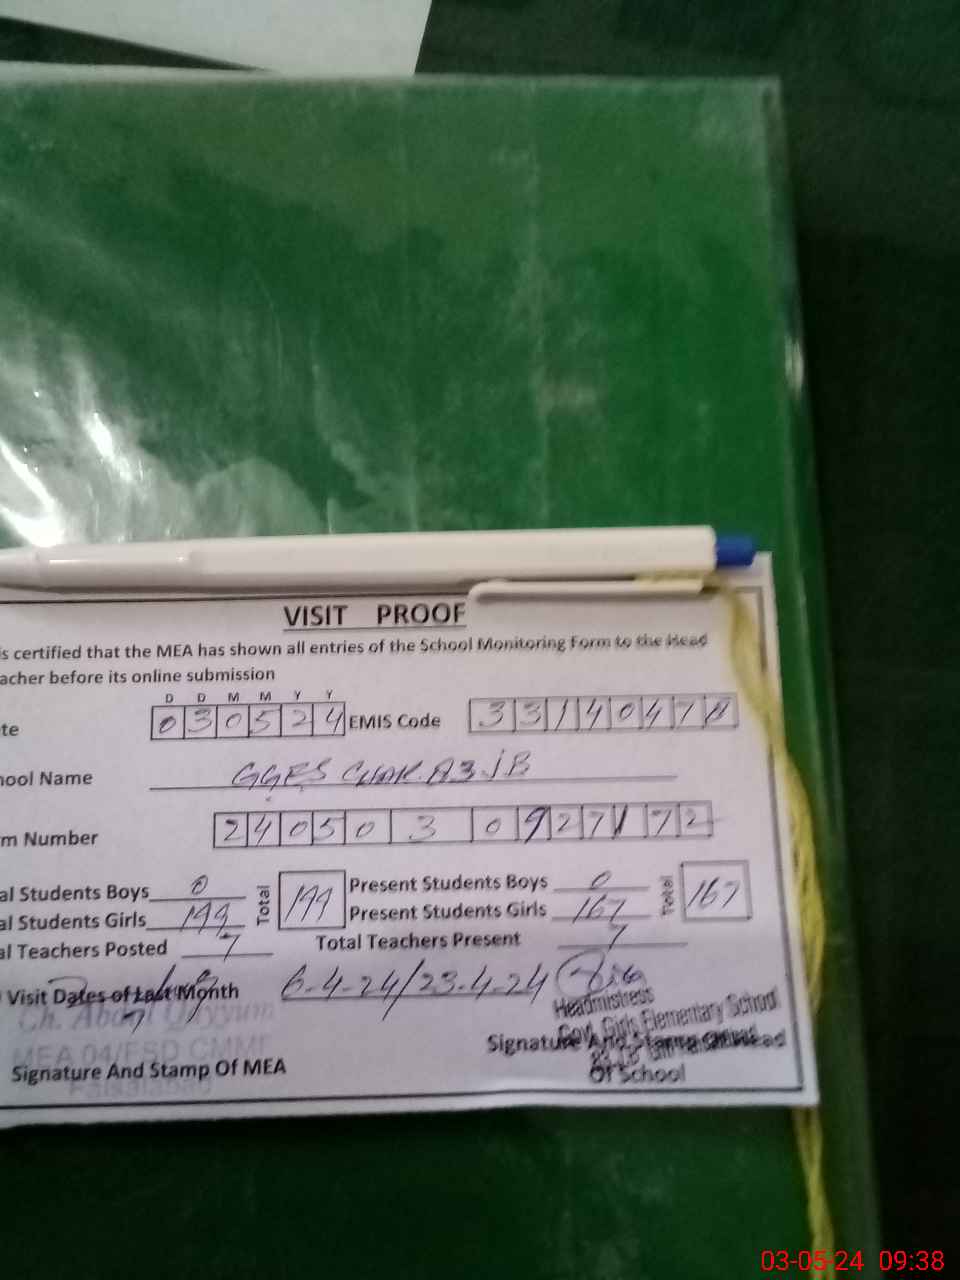 VISIT PROOF
is certified that the MEA has shown all entries of the School Monitoring Form to the Head
acher before its online submission
D D M M Y Y
te 030524 EMIS Code 3314047
hool Name GGES CHAK.83.JB
m Number 24050 3 0927172
al Students Boys 0 Total 199 Present Students Boys 0 Total 167
al Students Girls 199 Present Students Girls 167
al Teachers Posted 7 Total Teachers Present 7
Visit Dates of Last Month 6-4-24/23-4-24
Ch. Abdul Qayyum
MEA 04/FSD CMMF
Faisalabad
Signature And Stamp Of MEA
Headmistress
Govt. Girls Elementary School
Signature And Stamp Head
Of School
03-05-24 09:38